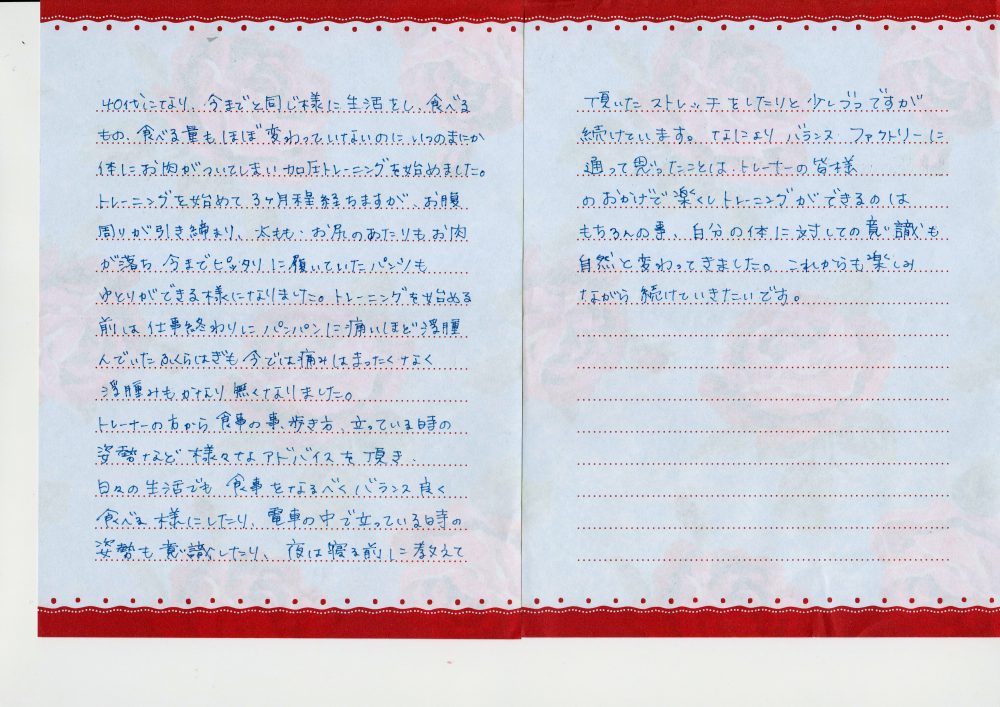 40代になり、今までと同じ様に生活をし、食べる
もの、食べる量もほぼ変わっていないのにいつのまにか
体にお肉がついてしまい加圧トレーニングを始めました。
トレーニングを始めて3ヶ月程経ちますが、お腹
周りが引き締まり、太もも・お尻のあたりもお肉
が落ち 今までピッタリに履いていたパンツも
ゆとりができる様になりました。トレーニングを始める
前は仕事終わりにパンパンに痛いほど浮腫
んでいたふくらはぎも今では痛みはまったくなく
浮腫みもかなり無くなりました。
トレーナーの方から食事の事、歩き方、立っている時の
姿勢など様々なアドバイスを頂き、
日々の生活でも食事をなるべくバランス良く
食べる様にしたり、電車の中で立っている時の
姿勢も意識したり、夜は寝る前に教えて
頂いたストレッチをしたりと少しづつですが
続けています。なにより バランス・ファクトリーに
通って思ったことは、トレーナーの皆様
のおかげで楽しくトレーニングができるのは
もちろんの事、自分の体に対しての意識も
自然と変わってきました。これからも楽しみ
ながら続けていきたいです。